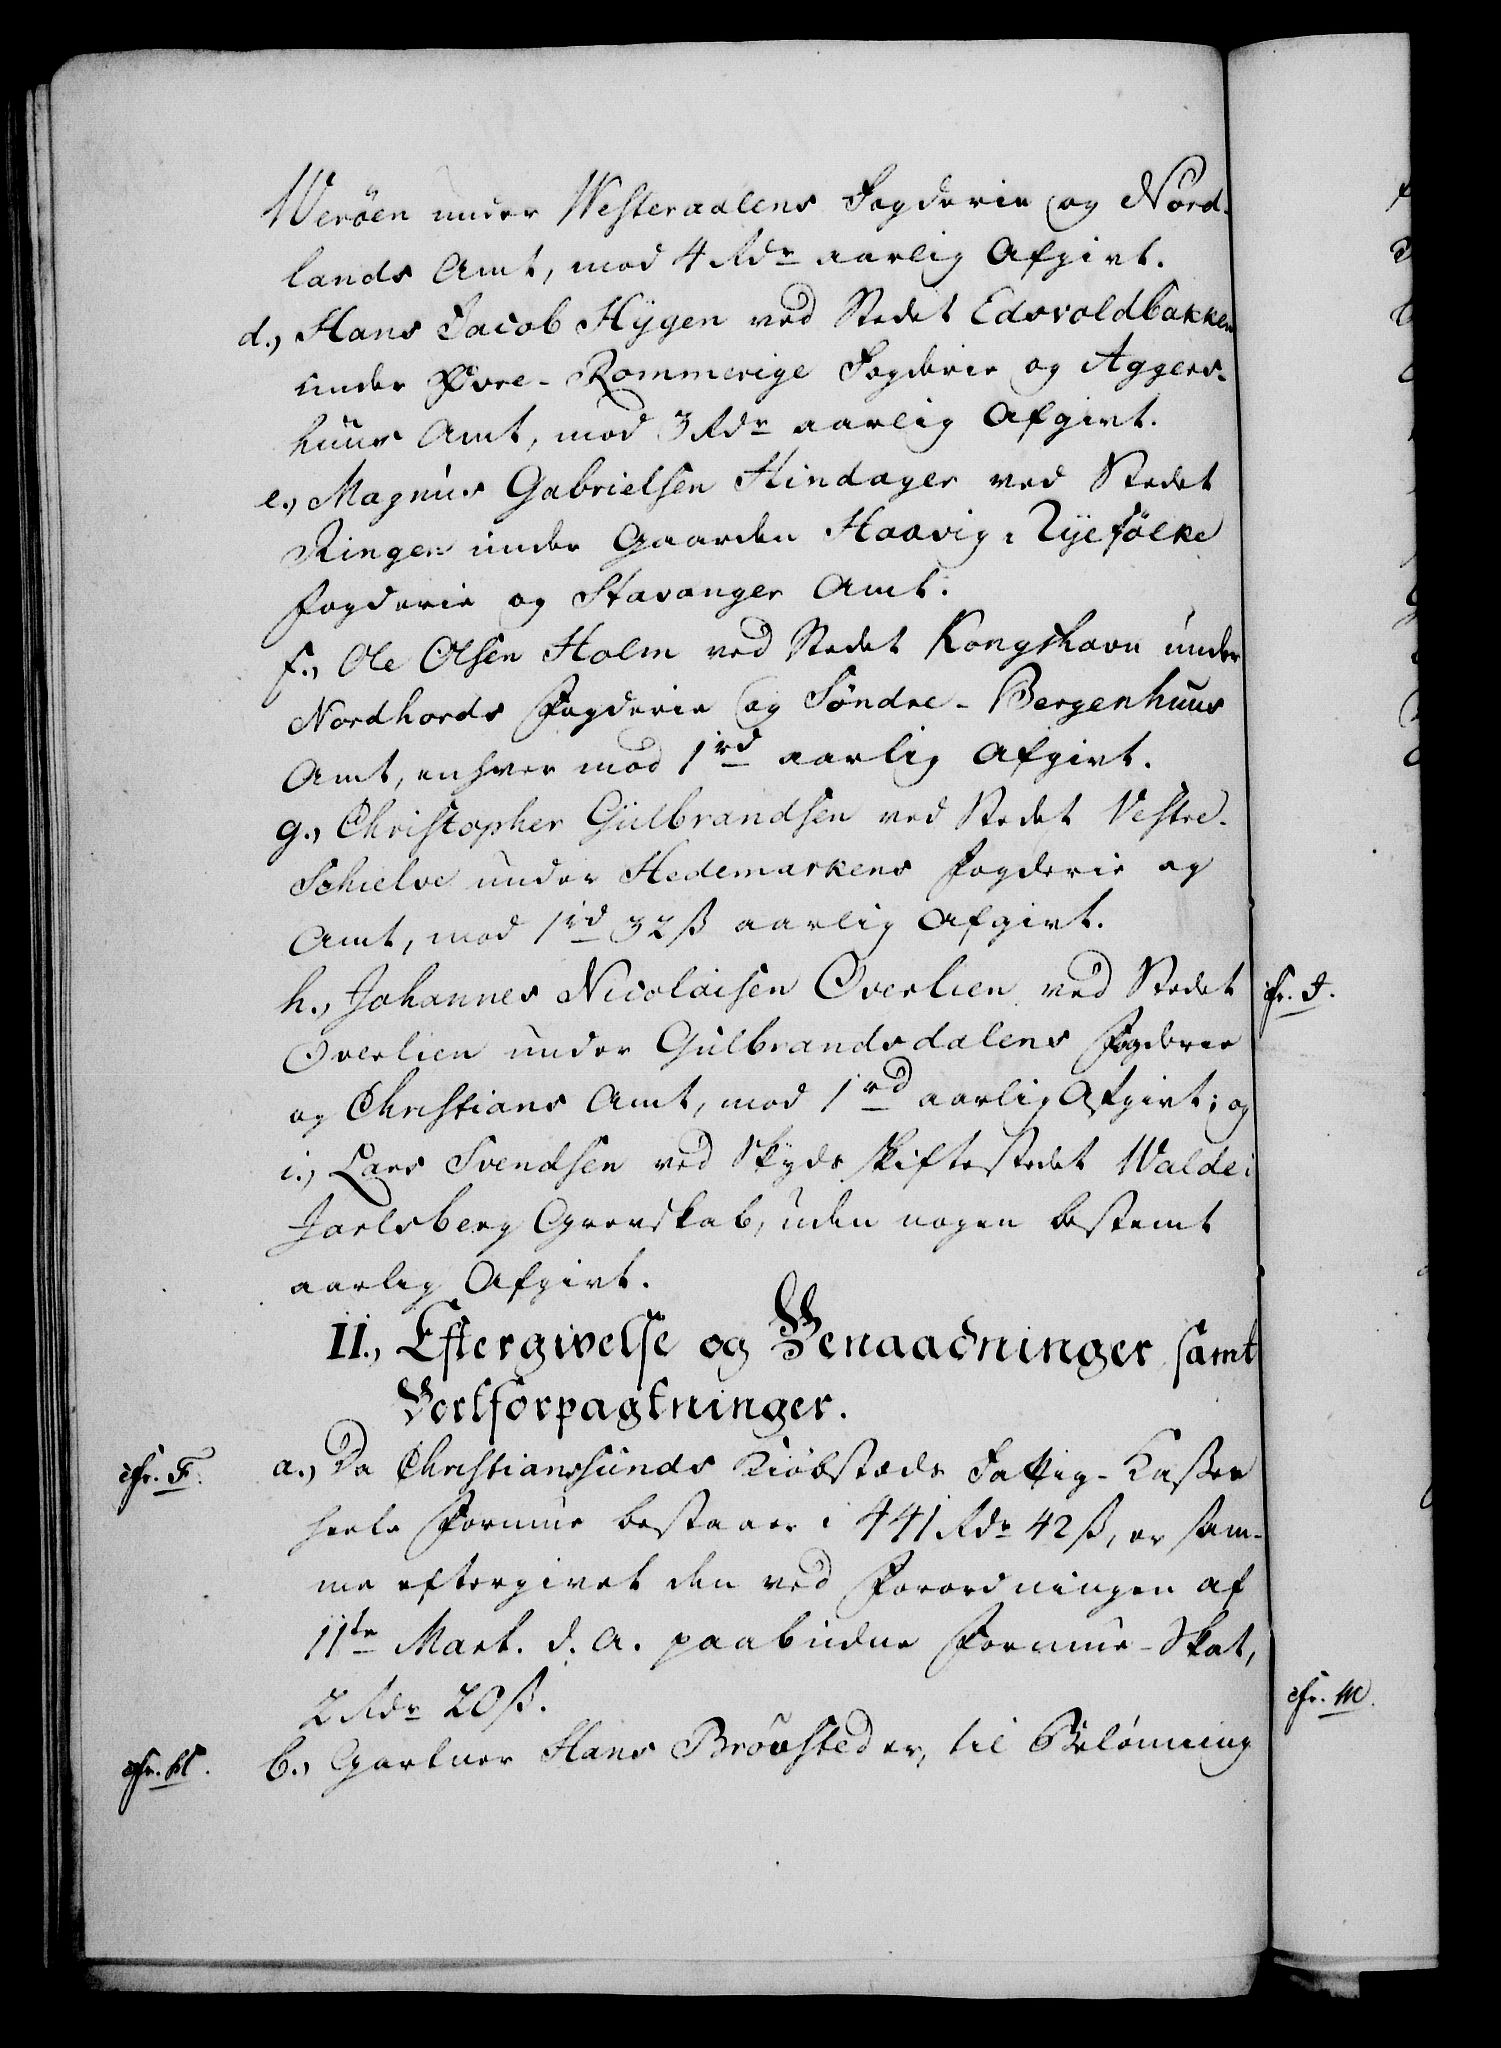 Werøen under Westeraalens Fogderie og Nord-
lands Amt, mod 4 Rdr aarlig Afgivt.
d., Hans Jacob Hÿgen ved Stedet Edsvoldbakken
under Øvre-Rommerige Fogderie og Aggers-
huus Amt, mod 3 Rdr aarlig Afgivt.
e., Magnus Gabrielsen Hindager ved Stedet
Ringen under Gaarden Haavig i Ryefølke
Fogderie og Stavanger Amt.
f., Ole Olsen Holm ved Stedet Kongshavn under
Nordhords Fogderie og Söndre-Bergenhuus
Amt, enhver mod 1 rd aarlig Afgivt.
g., Christopher Gulbrandsen ved Stedet Vestre-
Schielve under Hedemarkens Fogderie og
Amt, mod 1 rd 32 ß aarlig Afgivt.
h., Johannes Nicolaisen Overlien ved Stedet
Overlien under Gulbrandsdalens Fogderie
og Christians Amt, mod 1 rd aarlig Afgivt; og
i., Lars Svendsen ved Skydsskiftestedet Walde i
Jarlsberg Grevskab, uden nogen bestemt
aarlig Afgivt.
II., Eftergivelse og Benaadninger samt
Bortforpagtninger.
cfr. F. a., Da Christianssunds Kiøbstæds Fattig-Kasses
heele Formue bestaaer i 441 Rdr 42 ß, er sam-
me eftergivet den ved Forordningen af
11te Mart. d. A. paabudne Formue-Skat,
2 Rdr 20 ß.
b., Gartner Hans Brøvsted er, til Belønning
cfr. J.
cfr. M.